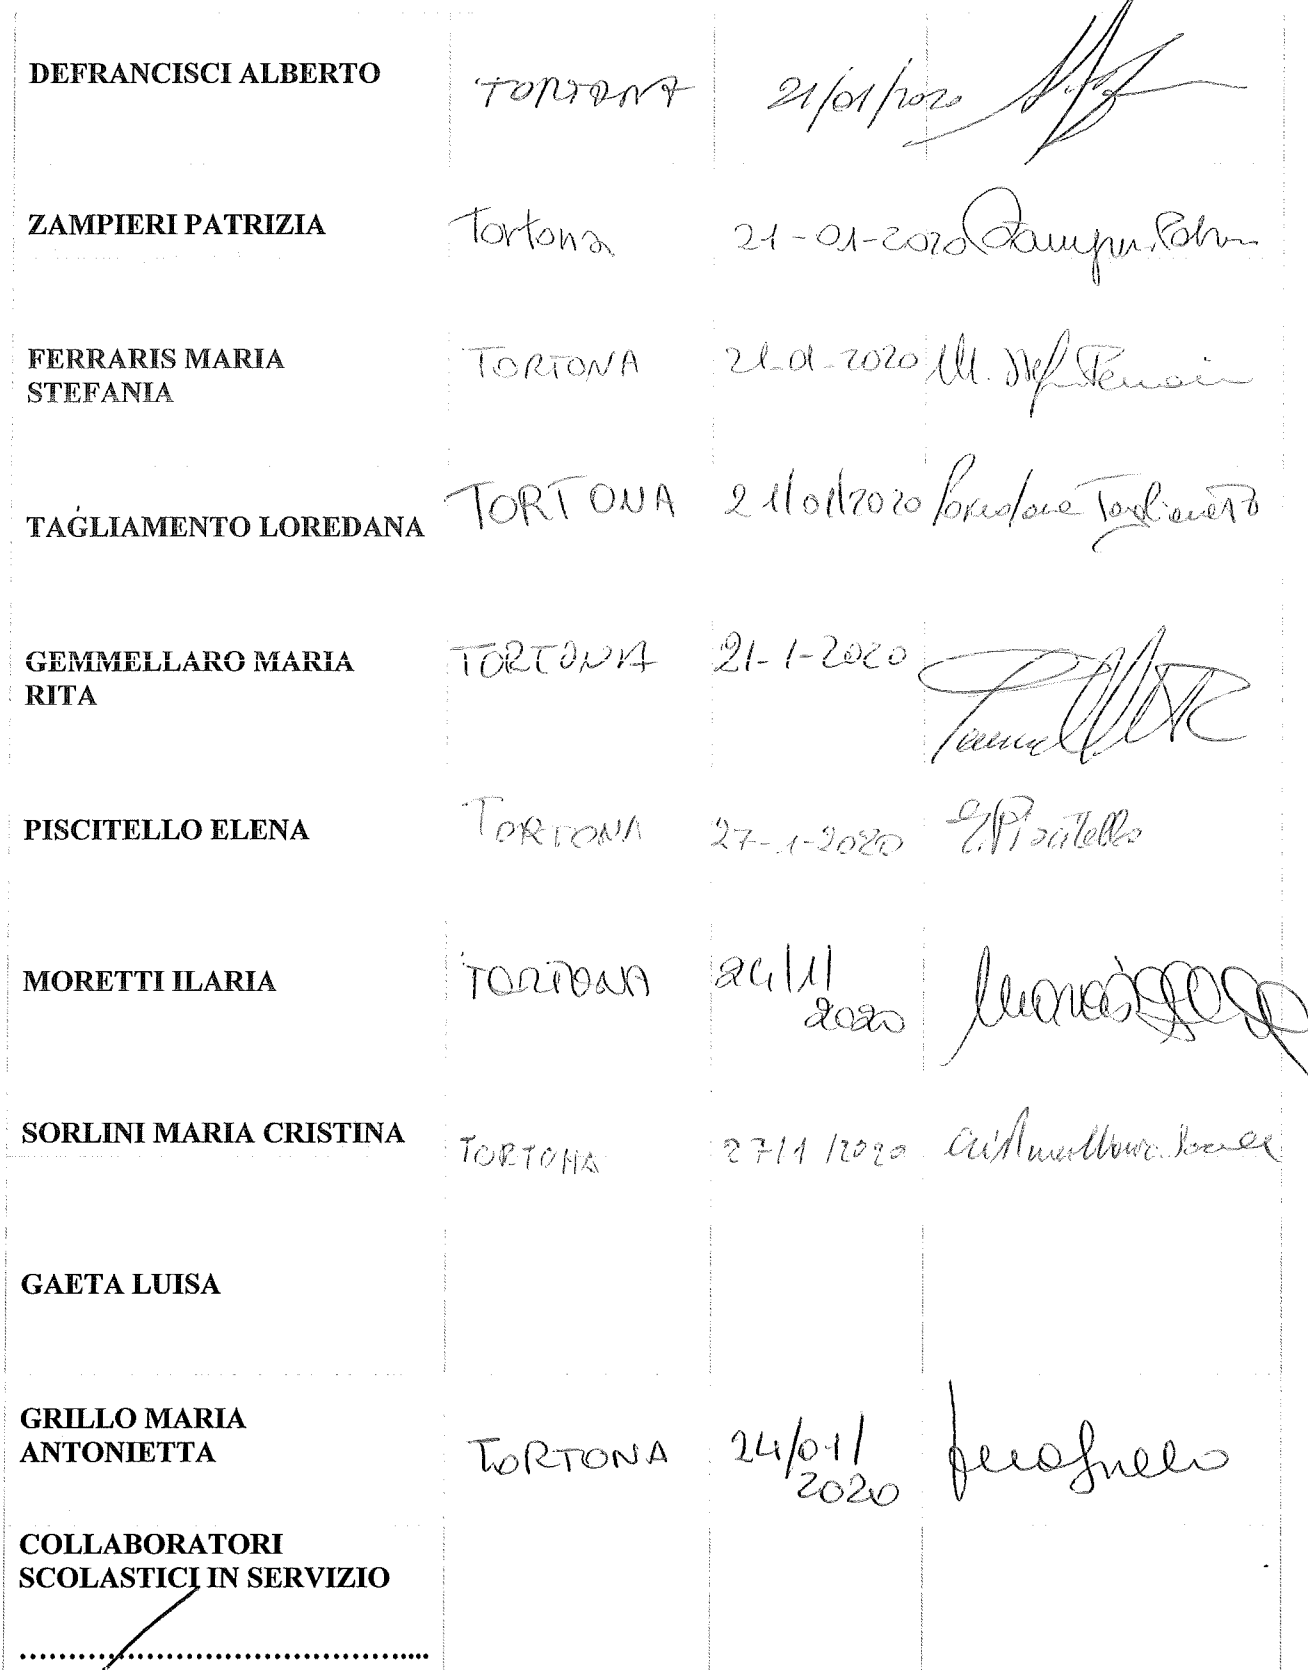 DEFRANCISCI ALBERTO TORTONA 21/01/2020
ZAMPIERI PATRIZIA Tortona 21-01-2020
FERRARIS MARIA TORTONA 21-01-2020
STEFANIA
TAGLIAMENTO LOREDANA TORTONA 21/01/2020 Loredana Tagliamento
GEMMELLARO MARIA TORTONA 21-1-2020
RITA
PISCITELLO ELENA TORTONA 27-1-2020 E. Piscitello
MORETTI ILARIA TORTONA 24/1/
2020
SORLINI MARIA CRISTINA TORTONA 27/1/2020
GAETA LUISA
GRILLO MARIA
ANTONIETTA TORTONA 24/01/
2020
COLLABORATORI
SCOLASTICI IN SERVIZIO
..........................................